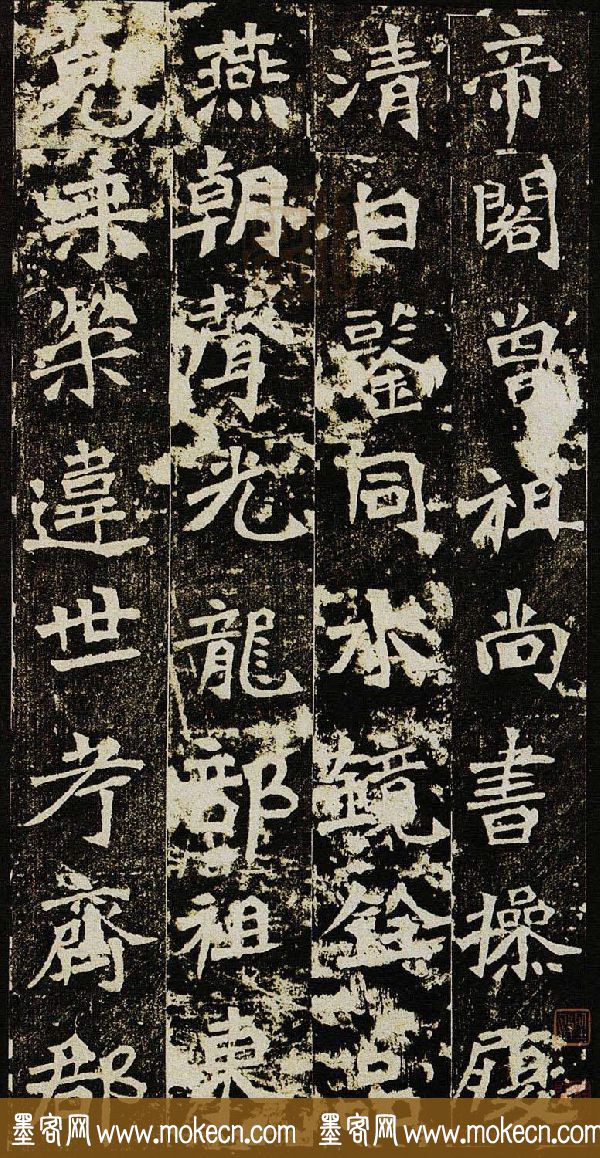 帝閣曾祖尚書操履
清白鑒同氷鏡銓品
燕朝聲光龍部祖東
莞乘榮違世考齊郡
墨客网 www.mokecn.com 墨客网 www.mokecn.com